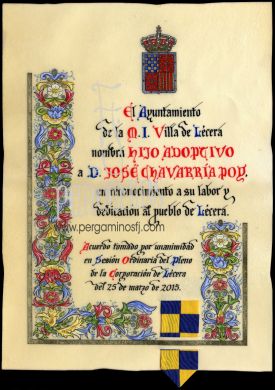 El Ayuntamiento
de la M. I. Villa de Lécera
nombra HIJO ADOPTIVO
a D. JOSÉ CHAVARRÍA POY.
en reconocimiento a su labor y
dedicación al pueblo de Lécera.
www.pergaminosfj.com
Acuerdo tomado por unanimidad
en Sesión Ordinaria del Pleno
de la Corporación de Lécera
del 25 de marzo de 2015.